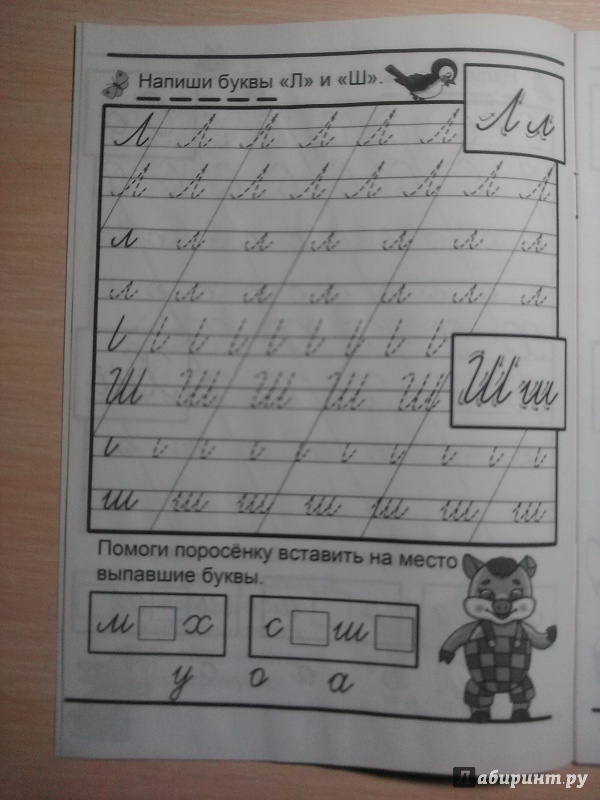 Напиши буквы «Л» и «Ш».
Л Л Л Л Л Л
Л л
Л Л Л Л Л Л Л Л
л л л л л л л
л л л л л л л
Ш Ш Ш Ш Ш
Ш ш
ш ш ш ш ш ш ш
Помоги поросёнку вставить на место
выпавшие буквы.
м х с ш
у о а
Лабиринт.ру